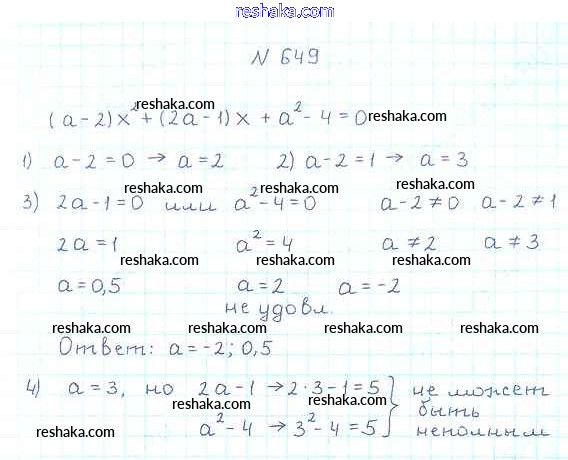 reshaka.com
N 649
reshaka.com
(a-2)x²+(2a-1)x + a²-4=0 reshaka.com
1) a-2=0 → a=2 2) a-2=1 → a=3
reshaka.com reshaka.com reshaka.com
3) 2a-1=0 или a²-4=0 a-2≠0 a-2≠1
2a=1 a²=4 a≠2 a≠3
reshaka.com reshaka.com reshaka.com
a=0,5 a=2 a=-2
не удовл.
reshaka.com reshaka.com reshaka.com
Ответ: a=-2; 0,5
reshaka.com
4) a=3, но 2a-1 → 2·3-1=5 } не может
reshaka.com reshaka.com быть
a²-4 → 3²-4=5 неполным
reshaka.com